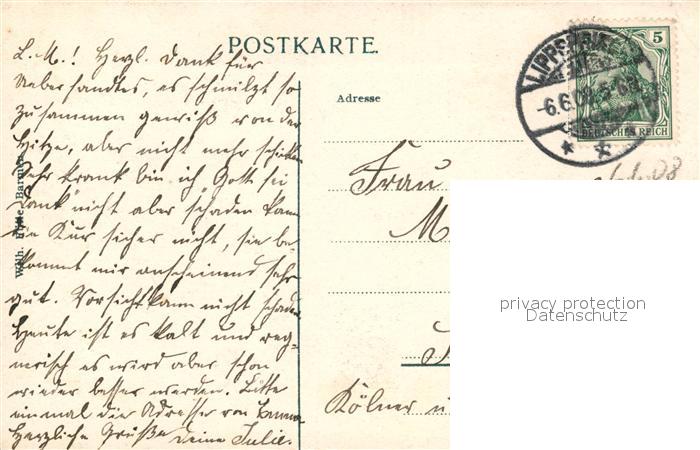 POSTKARTE.
L. M.! Herzl. Dank für
Uebersandtes, es schmilzt so
zusammen gewiß von der
Hitze, aber nicht mehr schicken
Sehr krank bin ich Gott sei
Dank nicht aber schaden kann
die Kur sicher nicht, sie be-
kommt mir anscheinend sehr
gut. Vorsicht kann nicht schaden
Heute ist es kalt und reg-
nerisch es wird aber schon
wieder besser werden. Bitte
einmal die Adresse von
Herzliche Grüße Deine Julie.
Wilh. Barmen
Adresse
Frau
M
Kölner
5
DEUTSCHES REICH
LIPPSPRINGE
-6.6.08. 5-6
6.6.08
privacy protection
Datenschutz